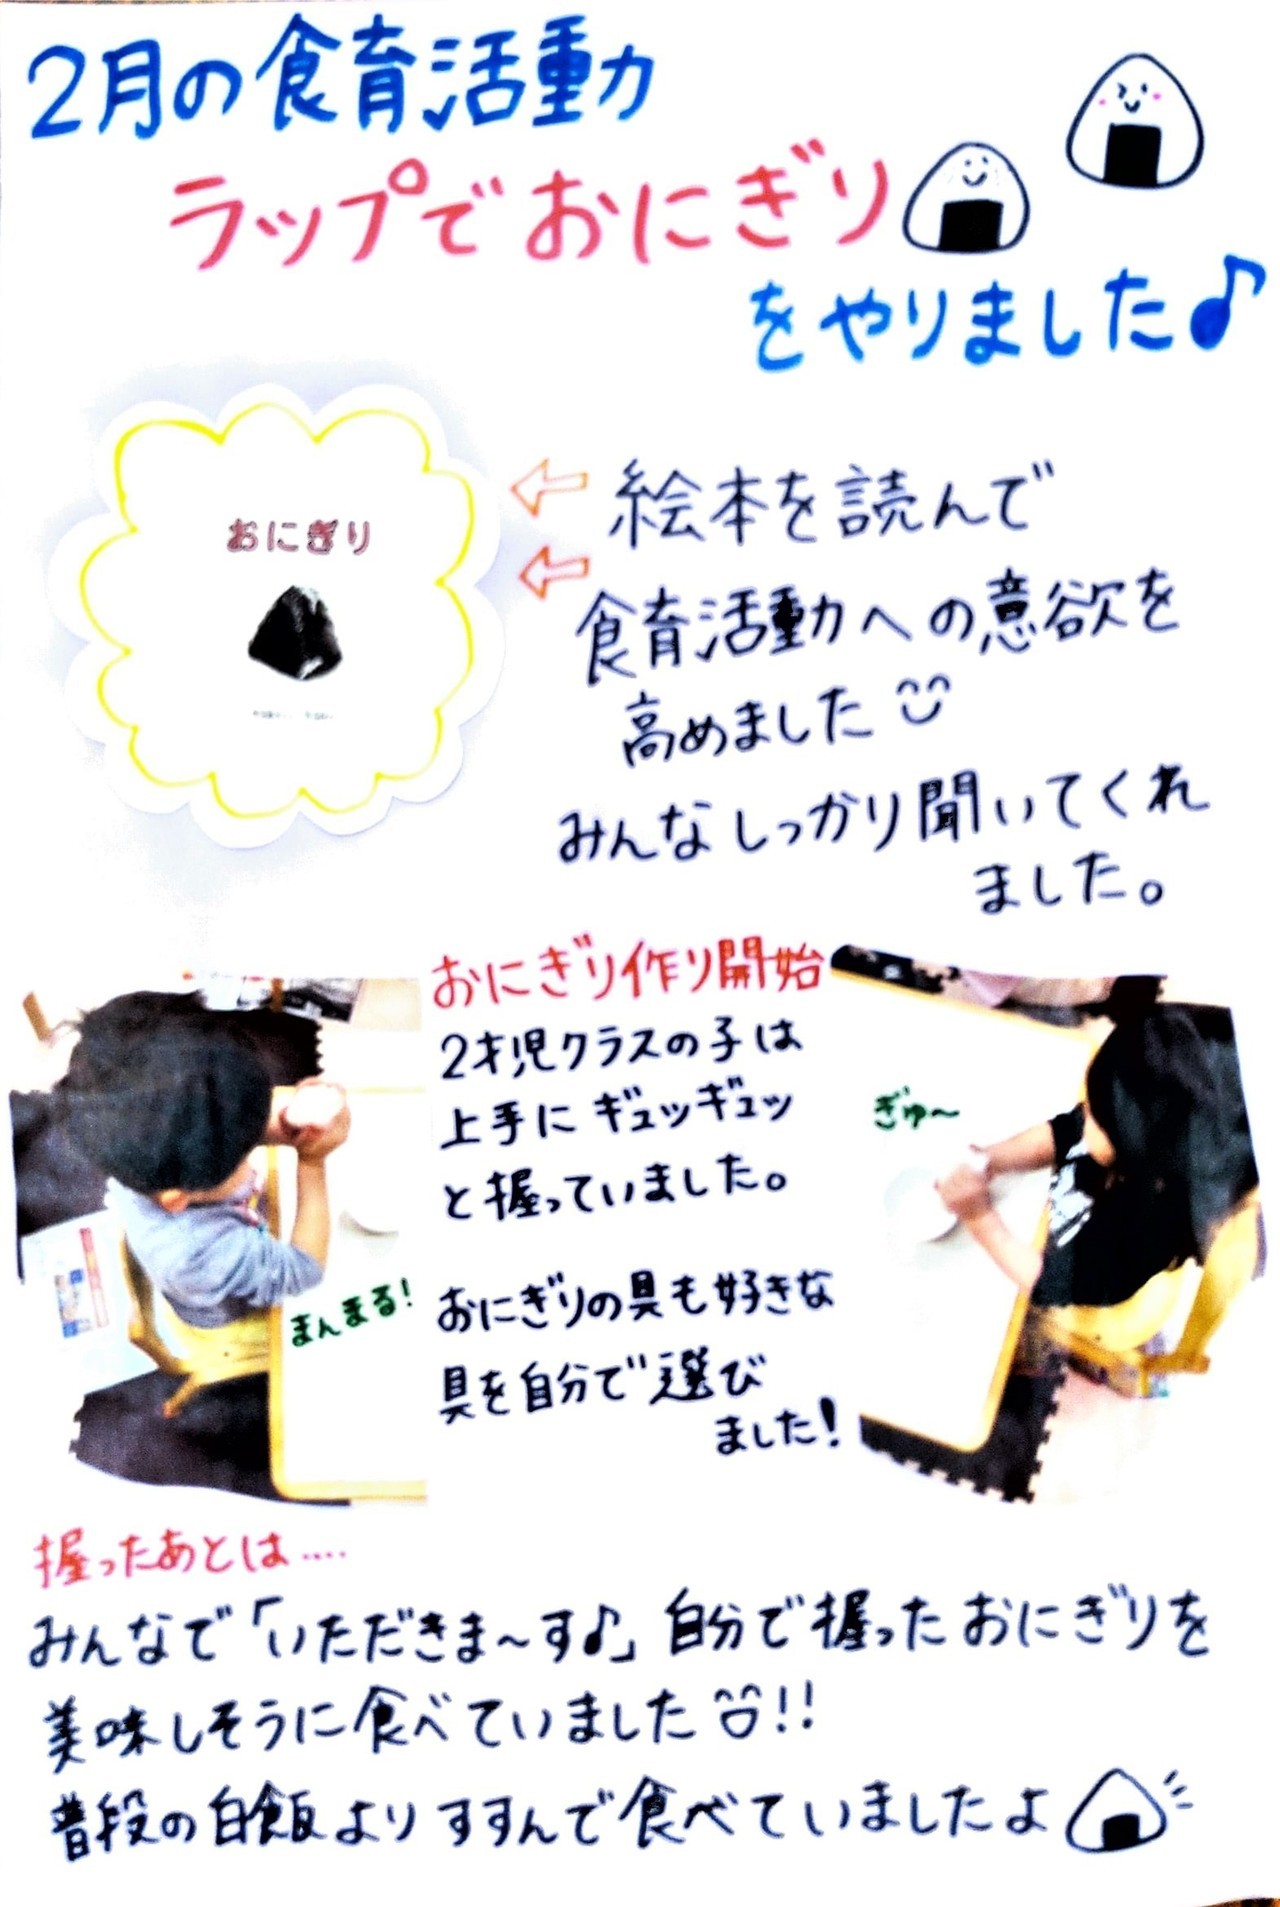 2月の食育活動
ラップでおにぎり
をやりました♪
おにぎり
絵本を読んで
食育活動への意欲を
高めました
みんなしっかり聞いてくれ
ました。
おにぎり作り開始
2才児クラスの子は
上手にギュッギュッ
と握っていました。
ぎゅ〜
まんまる!
おにぎりの具も好きな
具を自分で選び
ました!
握ったあとは‥‥
みんなで「いただきま〜す♪」自分で握ったおにぎりを
美味しそうに食べていました!!
普段の白飯よりすすんで食べていましたよ